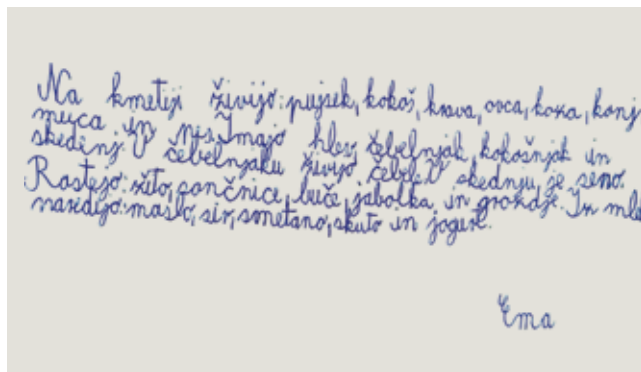 Na kmetiji živijo: pujsek, kokoš, krava, ovca, koza, konj
muca in pes. Imajo hlev, čebelnjak, kokošnjak in
skedenj. V čebelnjaku živijo čebele. V skednju je seno.
Rastejo: žito, sončnice, buče, jabolka, in grozdje. Iz mle
naredijo: maslo, sir, smetano, skuto in jogurt.
Ema